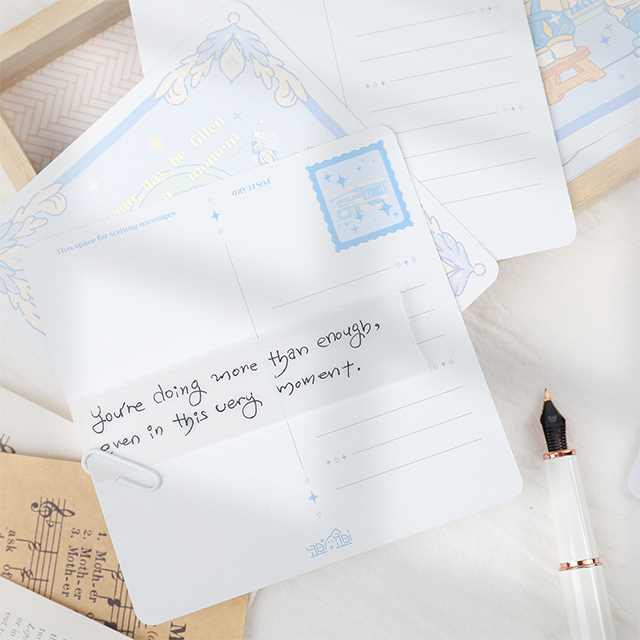 day is filled
moment
This space for writing messages.
POSTCARD
you're doing more than enough,
even in this very moment.
ask
1. Moth-er
2. Moth-er
3. Math-er